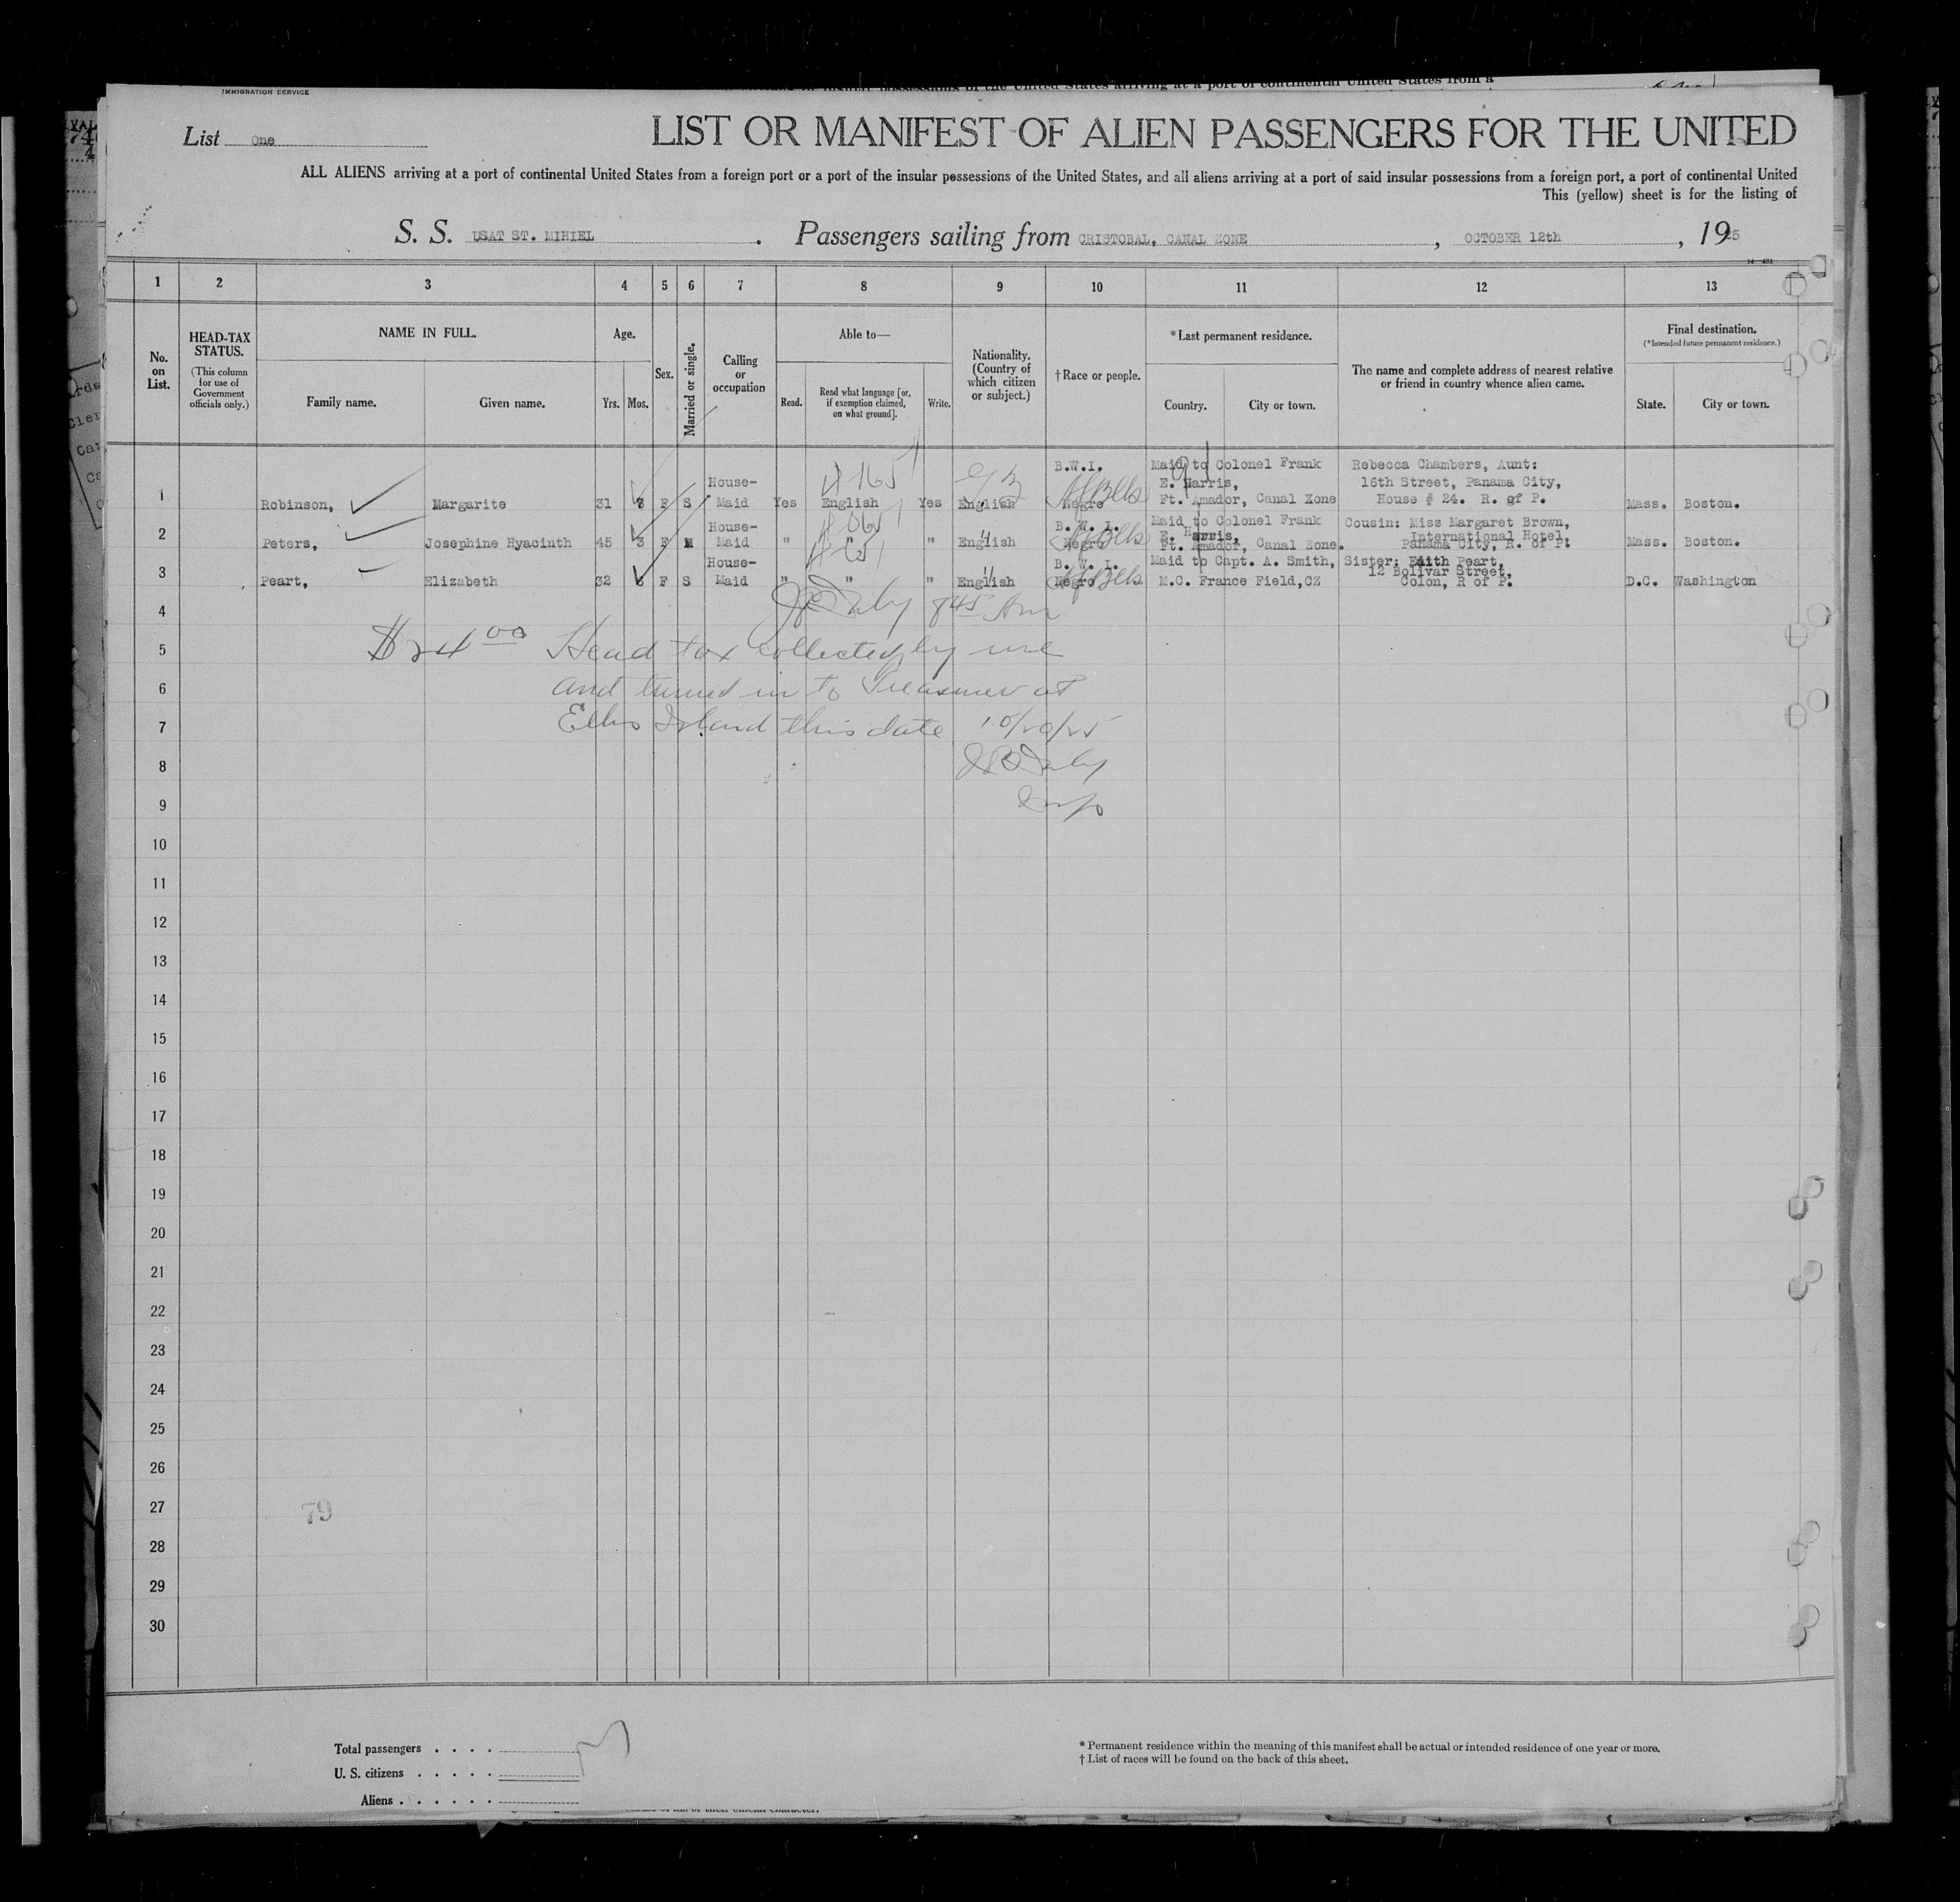 IMMIGRATION SERVICE
List One
LIST OR MANIFEST OF ALIEN PASSENGERS FOR THE UNITED
ALL ALIENS arriving at a port of continental United States from a foreign port or a port of the insular possessions of the United States, and all aliens arriving at a port of said insular possessions from a foreign port, a port of continental United
This (yellow) sheet is for the listing of
S. S. USAT ST. MIHIEL . Passengers sailing from CRISTOBAL, CANAL ZONE , OCTOBER 12th , 1925
1 2 3 4 5 6 7 8 9 10 11 12 13
No. on List.
HEAD-TAX STATUS.
(This column for use of Government officials only.)
NAME IN FULL.
Family name. Given name.
Age.
Yrs. Mos.
Sex.
Married or single.
Calling or occupation
Able to—
Read. Read what language [or, if exemption claimed, on what ground]. Write.
Nationality. (Country of which citizen or subject.)
†Race or people.
*Last permanent residence.
Country. City or town.
The name and complete address of nearest relative or friend in country whence alien came.
Final destination.
(*Intended future permanent residence.)
State. City or town.
B.W.I. Maid to Colonel Frank Rebecca Chambers, Aunt:
House- E. Harris, 16th Street, Panama City,
1 Robinson, Margarite 31 F S Maid Yes English Yes English Negro Ft. Amador, Canal Zone House # 24. R. of P. Mass. Boston.
House- B. W. I. Maid to Colonel Frank Cousin: Miss Margaret Brown,
E. Harris, International Hotel,
2 Peters, Josephine Hyacinth 45 3 F M Maid " " " English Negro Ft. Amador, Canal Zone. Panama City, R. of P. Mass. Boston.
House- B. W. I. Maid to Capt. A. Smith, Sister: Edith Peart,
12 Bolivar Street,
3 Peart, Elizabeth 32 F S Maid " " " English Negro M.C. France Field,CZ Colon, R of P. D.C. Washington
4
5 $24 00 Head tax collected by me
6 and turned in to Treasurer at
7 Ellis Island this date 10/20/25
8
9
10
11
12
13
14
15
16
17
18
19
20
21
22
23
24
25
26
27
79
28
29
30
Total passengers . . . .
U. S. citizens . . . . .
Aliens . . . . . .
* Permanent residence within the meaning of this manifest shall be actual or intended residence of one year or more.
† List of races will be found on the back of this sheet.